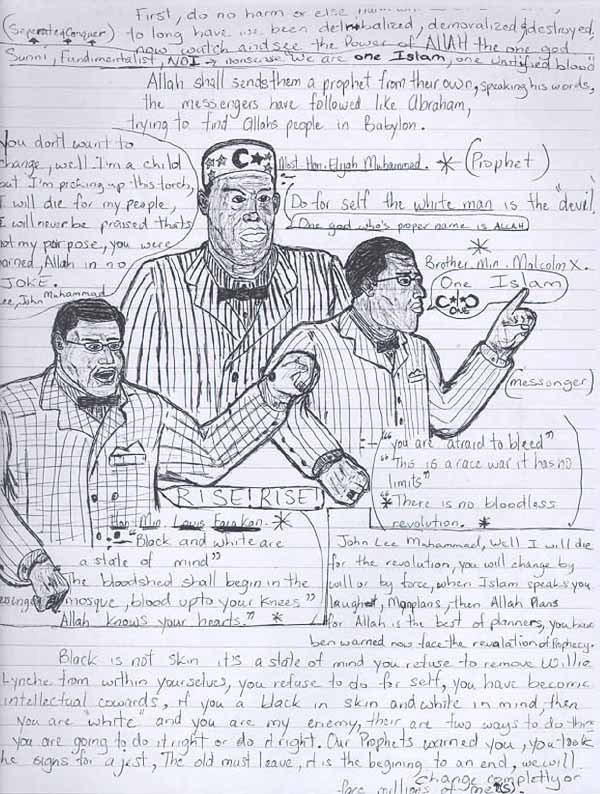 First, do no harm or else
(Seperated Conquer) to long have we been demoralized & destroyed.
now watch and see the Power of AllAH the one god
Sunni, Fundimentalist, NOI → nonsense we are one Islam, one Unitified blood"
Allah shall sends them a prophet from their own, speaking his words,
the messengers have followed like Abraham,
trying to find Allahs people in Babylon.
you don't want to
change, well I'm a child
but I'm picking up this torch,
I will die for my people,
I will never be praised thats
not my pourpose, you were
warned, Allah in no
JOKE.
Lee, John Muhammad
Most Hon. Elijah Muhammad. * (Prophet)
Do for self the white man is the "devil.
One god who's proper name is ALLAH
*
Brother Min. Malcolm X.
One Islam
ONE
(messonger)
"you are afraid to bleed"
"This is a race war it has no
limits"
"There is no bloodless
revolution. *
RISE! RISE!
Hon. Min. Lowis Farakon. *
"Black and white are
a state of mind"
The bloodshed shall begin in the
mosque, blood up to your knees"
Allah knows your hearts." *
John Lee Muhammad, Well I will die
for the revolution, you will change by
will or by force, when Islam speaks you
laughet, Manplans, then Allah Plans
for Allah is the best of planners, you have
ben warned now face the revalation of Prophecy.
Black is not skin it's a state of mind you refuse to remove Willie
Lynche from within yourselves, you refuse to do for self, you have become
intellectual cowards, if you a black in skin and white in mind, then
you are "white" and you are my enemy, their are two ways to do this
you are going to do it right or do it right. Our Prophets warned you, you took
the signs for a jest, The old must leave, it is the begining to an end, we will
change completly or
face millions of me(s).